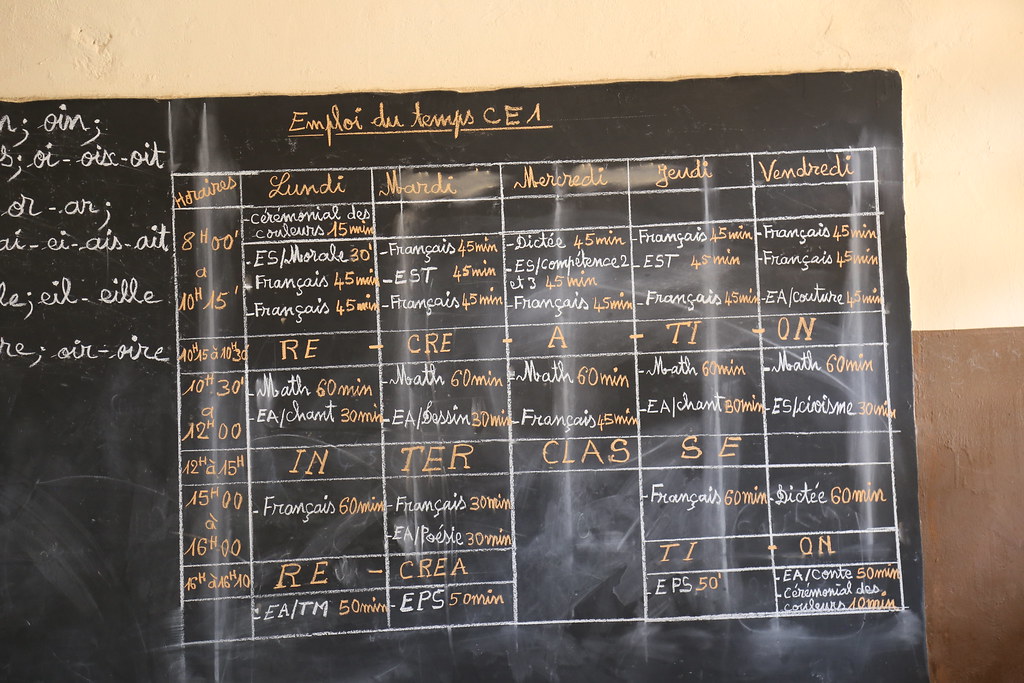 n; oin;
s; oi - oix - oit
or - ar;
ai - ei - ais - ait
le; eil - eille
re; oir - oire
Emploi du temps CE1
Horaires Lundi Mardi Mercredi Jeudi Vendredi
8H00' à 10H15'
- Cérémonial des
couleurs 15min
- ES/Morale 30'
- Français 45min
- Français 45min
- Français 45min
- EST 45min
- Français 45min
- Dictée 45min
- ES/compétence 2
et 3 45min
- Français 45min
- Français 45min
- EST 45min
- Français 45min
- Français 45min
- Français 45min
- EA/couture 45min
10H15 à 10H30 RE - CRE - A - TI - ON
10H30' à 12H00
- Math 60min
- EA/chant 30min
- Math 60min
- EA/Dessin 30min
- Math 60min
- Français 45min
- Math 60min
- EA/chant 30min
- Math 60min
- ES/civisme 30min
12H à 15H IN TER CLAS SE
15H00 à 16H00
- Français 60min
- Français 30min
- EA/Poésie 30min
- Français 60min
- Dictée 60min
16H à 16H10 RE - CREA TI - ON
- EA/TM 50min
- EPS 50min
- EPS 50'
- EA/Conte 50min
- Cérémonial des
couleurs 10min